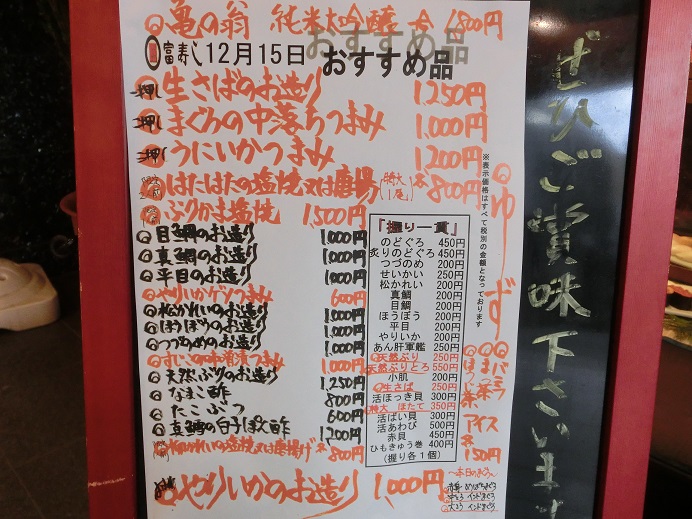 亀の翁 純米大吟醸 一合 1,800円
富寿し 12月15日 おすすめ品
一押し 生さばのお造り 1,250円
一押し まぐろの中落ちつまみ 1,000円
一押し うにいかつまみ 1,200円
はたはたの塩焼又は唐揚 (特大1尾) 各800円
ぶりかま塩焼 1,500円
目鯛のお造り 1,000円
真鯛のお造り 1,000円
平目のお造り 1,000円
やりいかゲソつまみ 600円
松かれいのお造り 1,000円
ほうぼうのお造り 1,000円
つづのめのお造り 1,000円
すじこの味噌漬つまみ 1,000円
天然ぶりのお造り 1,250円
なまこ酢 800円
たこぶつ 600円
真鱈の白子ぽん酢 1,200円
かれいの塩焼又は唐揚げ 各800円
やりいかのお造り 1,000円
『握り一貫』
のどぐろ 450円
炙りのどぐろ 450円
つづのめ 200円
せいかい 250円
松かれい 200円
真鯛 200円
目鯛 200円
ほうぼう 200円
平目 200円
やりいか 200円
あん肝軍艦 250円
天然ぶり 250円
天然ぶりとろ 550円
小肌 200円
生さば 250円
活ほっき貝 300円
特大 ほたて 350円
活ばい貝 300円
活あわび 500円
赤貝 450円
ひもきゅう巻 400円
(握り各1個)
※表示価格はすべて税別の金額となっております
ゆず
バニラ
まっ茶
ほうじ茶
アイス
各150円
～本日のまぐろ～
ぜひご賞味下さいませ